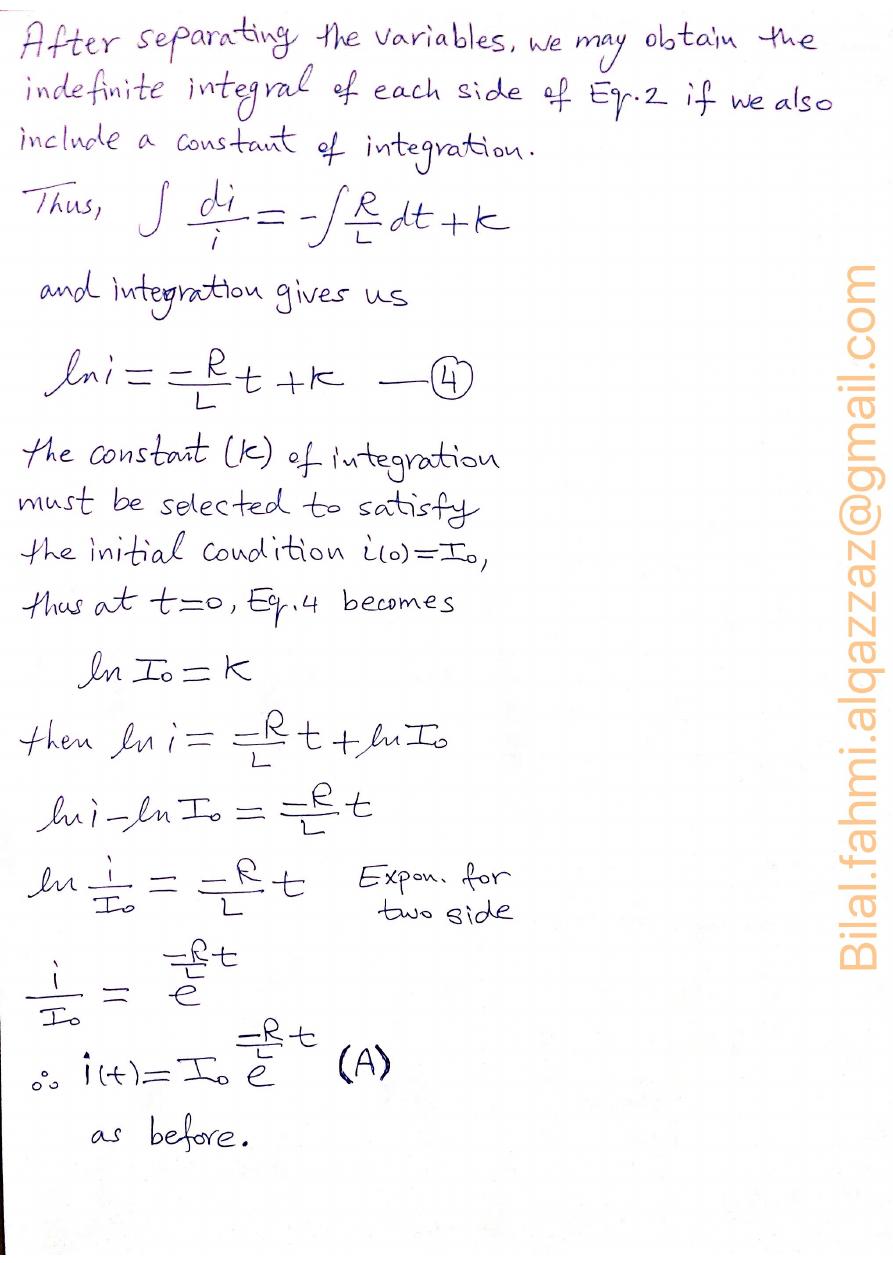 After separating the variables, we may obtain the
indefinite integral of each side of Eq.2 if we also
include a constant of integration.
Thus, ∫ di/i = -∫ R/L dt + K
and integration gives us
ln i = -R/L t + K — ④
the constant (K) of integration
must be selected to satisfy
the initial condition i(0)=I₀,
thus at t=0, Eq.4 becomes
ln I₀ = K
then ln i = -R/L t + ln I₀
ln i - ln I₀ = -R/L t
ln i/I₀ = -R/L t Expon. for
two side
i/I₀ = e^(-R/L t)
∴ i(t) = I₀ e^(-R/L t) (A)
as before.
Bilal.fahmi.alqazzaz@gmail.com